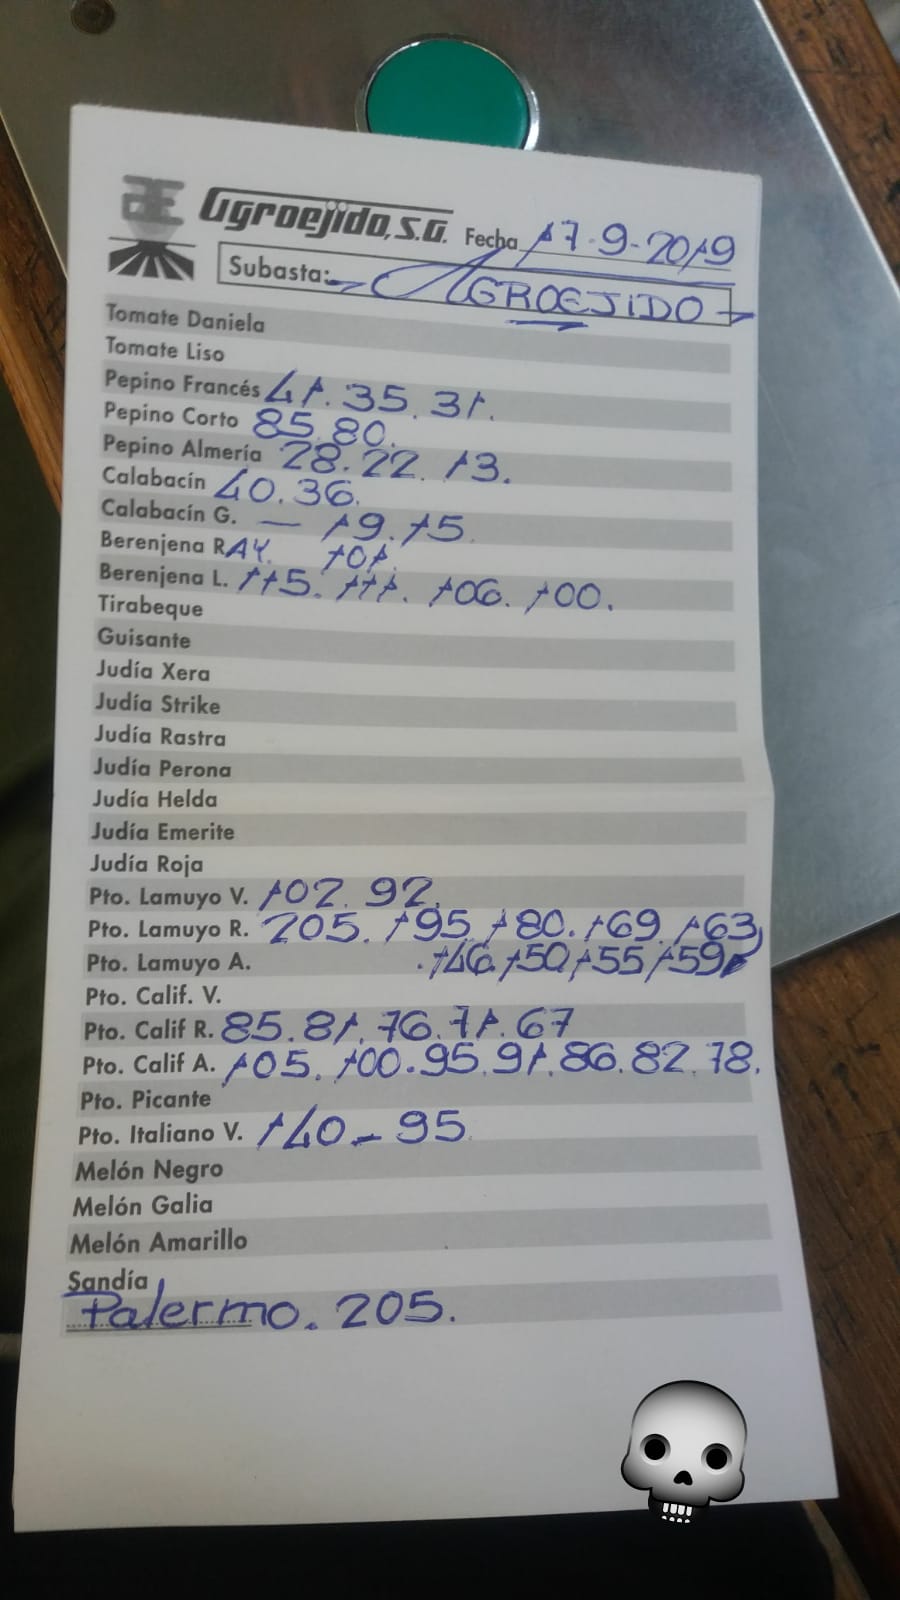 AE Agroejido, S.A. Fecha 17-9-2019
Subasta: AGROEJIDO
Tomate Daniela
Tomate Liso
Pepino Francés 41. 35. 31.
Pepino Corto 85. 80.
Pepino Almería 28. 22. 13.
Calabacín 40. 36.
Calabacín G. — 19. 15.
Berenjena RAY. 101.
Berenjena L. 115. 111. 106. 100.
Tirabeque
Guisante
Judía Xera
Judía Strike
Judía Rastra
Judía Perona
Judía Helda
Judía Emerite
Judía Roja
Pto. Lamuyo V. 102. 92.
Pto. Lamuyo R. 205. 195. 180. 169. 163
Pto. Lamuyo A. .146. 150. 155. 159
Pto. Calif. V.
Pto. Calif R. 85. 81. 76. 71. 67
Pto. Calif A. 105. 100. 95. 91. 86. 82. 78.
Pto. Picante
Pto. Italiano V. 140 - 95
Melón Negro
Melón Galia
Melón Amarillo
Sandía
Palermo. 205.